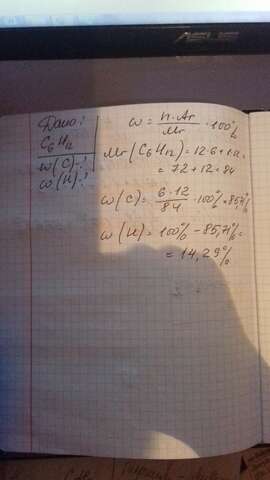 Дано:
C₆H₁₂
w(C)-?
w(H)-?
ω = n·Ar / Mr · 100%
Mr(C₆H₁₂) = 12·6+1·12=
= 72 + 12 = 84
ω(C) = 6·12 / 84 · 100% = 85,71%
ω(H) = 100% - 85,71% =
= 14,29%